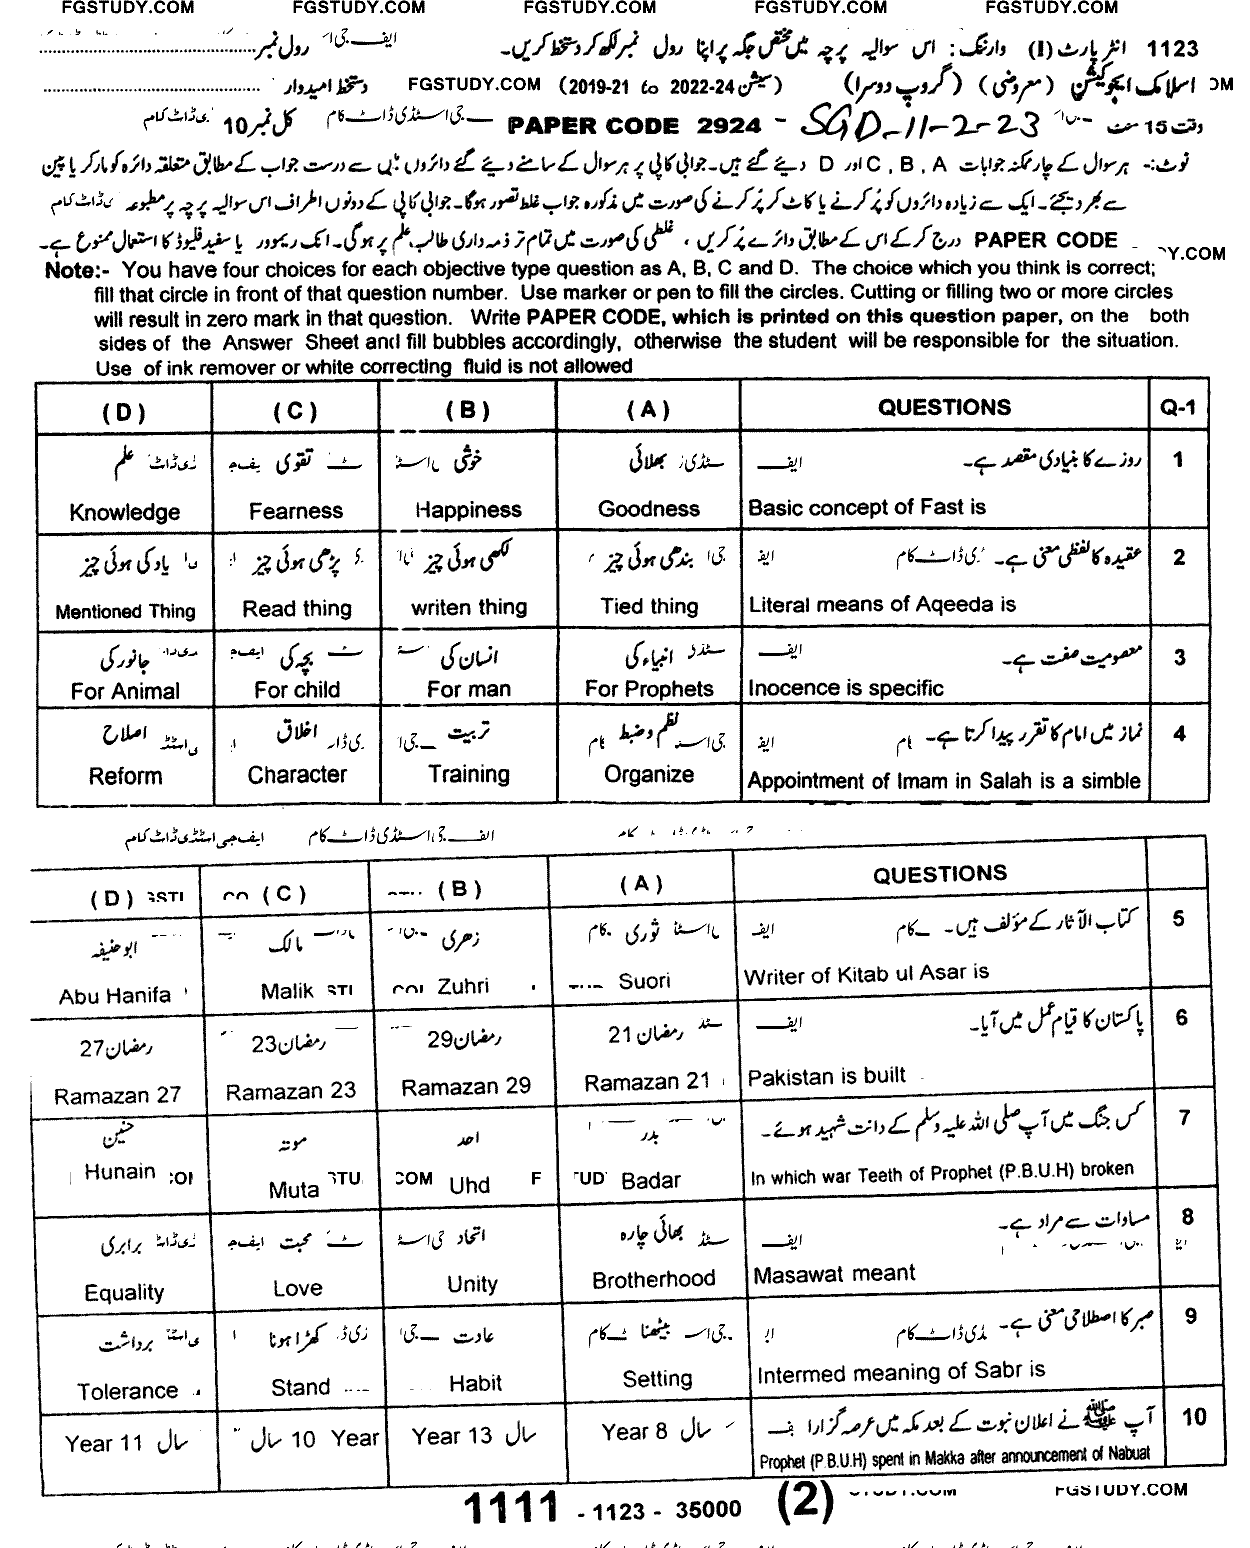 FGSTUDY.COM FGSTUDY.COM FGSTUDY.COM FGSTUDY.COM FGSTUDY.COM
1123 انٹر پارٹ (I) وارننگ: اس سوالیہ پرچہ میں مختص جگہ پر اپنا رول نمبر لکھ کر دستخط کریں۔ رول نمبر
اسلامک ایجوکیشن (معروضی) (گروپ دوسرا) (سیشن 2022-24 to 2019-21) FGSTUDY.COM دستخط امیدوار
وقت 15 منٹ SGD-11-2-23 PAPER CODE 2924 - کل نمبر 10
نوٹ:- ہر سوال کے چار ممکنہ جوابات A , B , C اور D دیئے گئے ہیں۔ جوابی کاپی پر ہر سوال کے سامنے دیئے گئے دائروں میں سے درست جواب کے مطابق متعلقہ دائرہ کو مارکر یا پین
سے بھر دیجئے۔ ایک سے زیادہ دائروں کو پُر کرنے یا کاٹ کر پُر کرنے کی صورت میں مذکورہ جواب غلط تصور ہوگا۔ جوابی کاپی کے دونوں اطراف اس سوالیہ پرچہ پر مطبوعہ
PAPER CODE درج کر کے اس کے مطابق دائرے پُر کریں ، غلطی کی صورت میں تمام تر ذمہ داری طالب علم پر ہوگی۔ انک ریموور یا سفید فلیوڈ کا استعمال ممنوع ہے۔
Note:- You have four choices for each objective type question as A, B, C and D. The choice which you think is correct;
fill that circle in front of that question number. Use marker or pen to fill the circles. Cutting or filling two or more circles
will result in zero mark in that question. Write PAPER CODE, which is printed on this question paper, on the both
sides of the Answer Sheet and fill bubbles accordingly, otherwise the student will be responsible for the situation.
Use of ink remover or white correcting fluid is not allowed
(D) (C) (B) (A) QUESTIONS Q-1
علم تقوی خوشی بھلائی روزے کا بنیادی مقصد ہے۔ 1
Knowledge Fearness Happiness Goodness Basic concept of Fast is
یاد کی ہوئی چیز پڑھی ہوئی چیز لکھی ہوئی چیز بندھی ہوئی چیز عقیدہ کا لفظی معنی ہے۔ 2
Mentioned Thing Read thing writen thing Tied thing Literal means of Aqeeda is
جانور کی بچہ کی انسان کی انبیاء کی معصومیت صفت ہے۔ 3
For Animal For child For man For Prophets Inocence is specific
اصلاح اخلاق تربیت نظم و ضبط نماز میں امام کا تقرر پیدا کرتا ہے۔ 4
Reform Character Training Organize Appointment of Imam in Salah is a simble
ایف جی اسٹڈی ڈاٹ کام ایف جی اسٹڈی ڈاٹ کام
(D) (C) (B) (A) QUESTIONS
ابو حنیفہ مالک زھری ثوری کتاب الآثار کے مؤلف ہیں۔ 5
Abu Hanifa Malik Zuhri Suori Writer of Kitab ul Asar is
27 رمضان 23 رمضان 29 رمضان 21 رمضان پاکستان کا قیام عمل میں آیا۔ 6
Ramazan 27 Ramazan 23 Ramazan 29 Ramazan 21 Pakistan is built
حنین موتہ احد بدر کس جنگ میں آپ صلی اللہ علیہ وسلم کے دانت شہید ہوئے۔ 7
Hunain Muta Uhd Badar In which war Teeth of Prophet (P.B.U.H) broken
برابری محبت اتحاد بھائی چارہ مساوات سے مراد ہے۔ 8
Equality Love Unity Brotherhood Masawat meant
برداشت کھڑا ہونا عادت بیٹھنا صبر کا اصطلاحی معنی ہے۔ 9
Tolerance Stand Habit Setting Intermed meaning of Sabr is
Year 11 سال 10 Year سال Year 13 سال Year 8 سال آپ ﷺ نے اعلان نبوت کے بعد مکہ میں عرصہ گزارا 10
Prophet (P.B.U.H) spent in Makka after announcement of Nabuat
1111 - 1123 - 35000 (2) FGSTUDY.COM